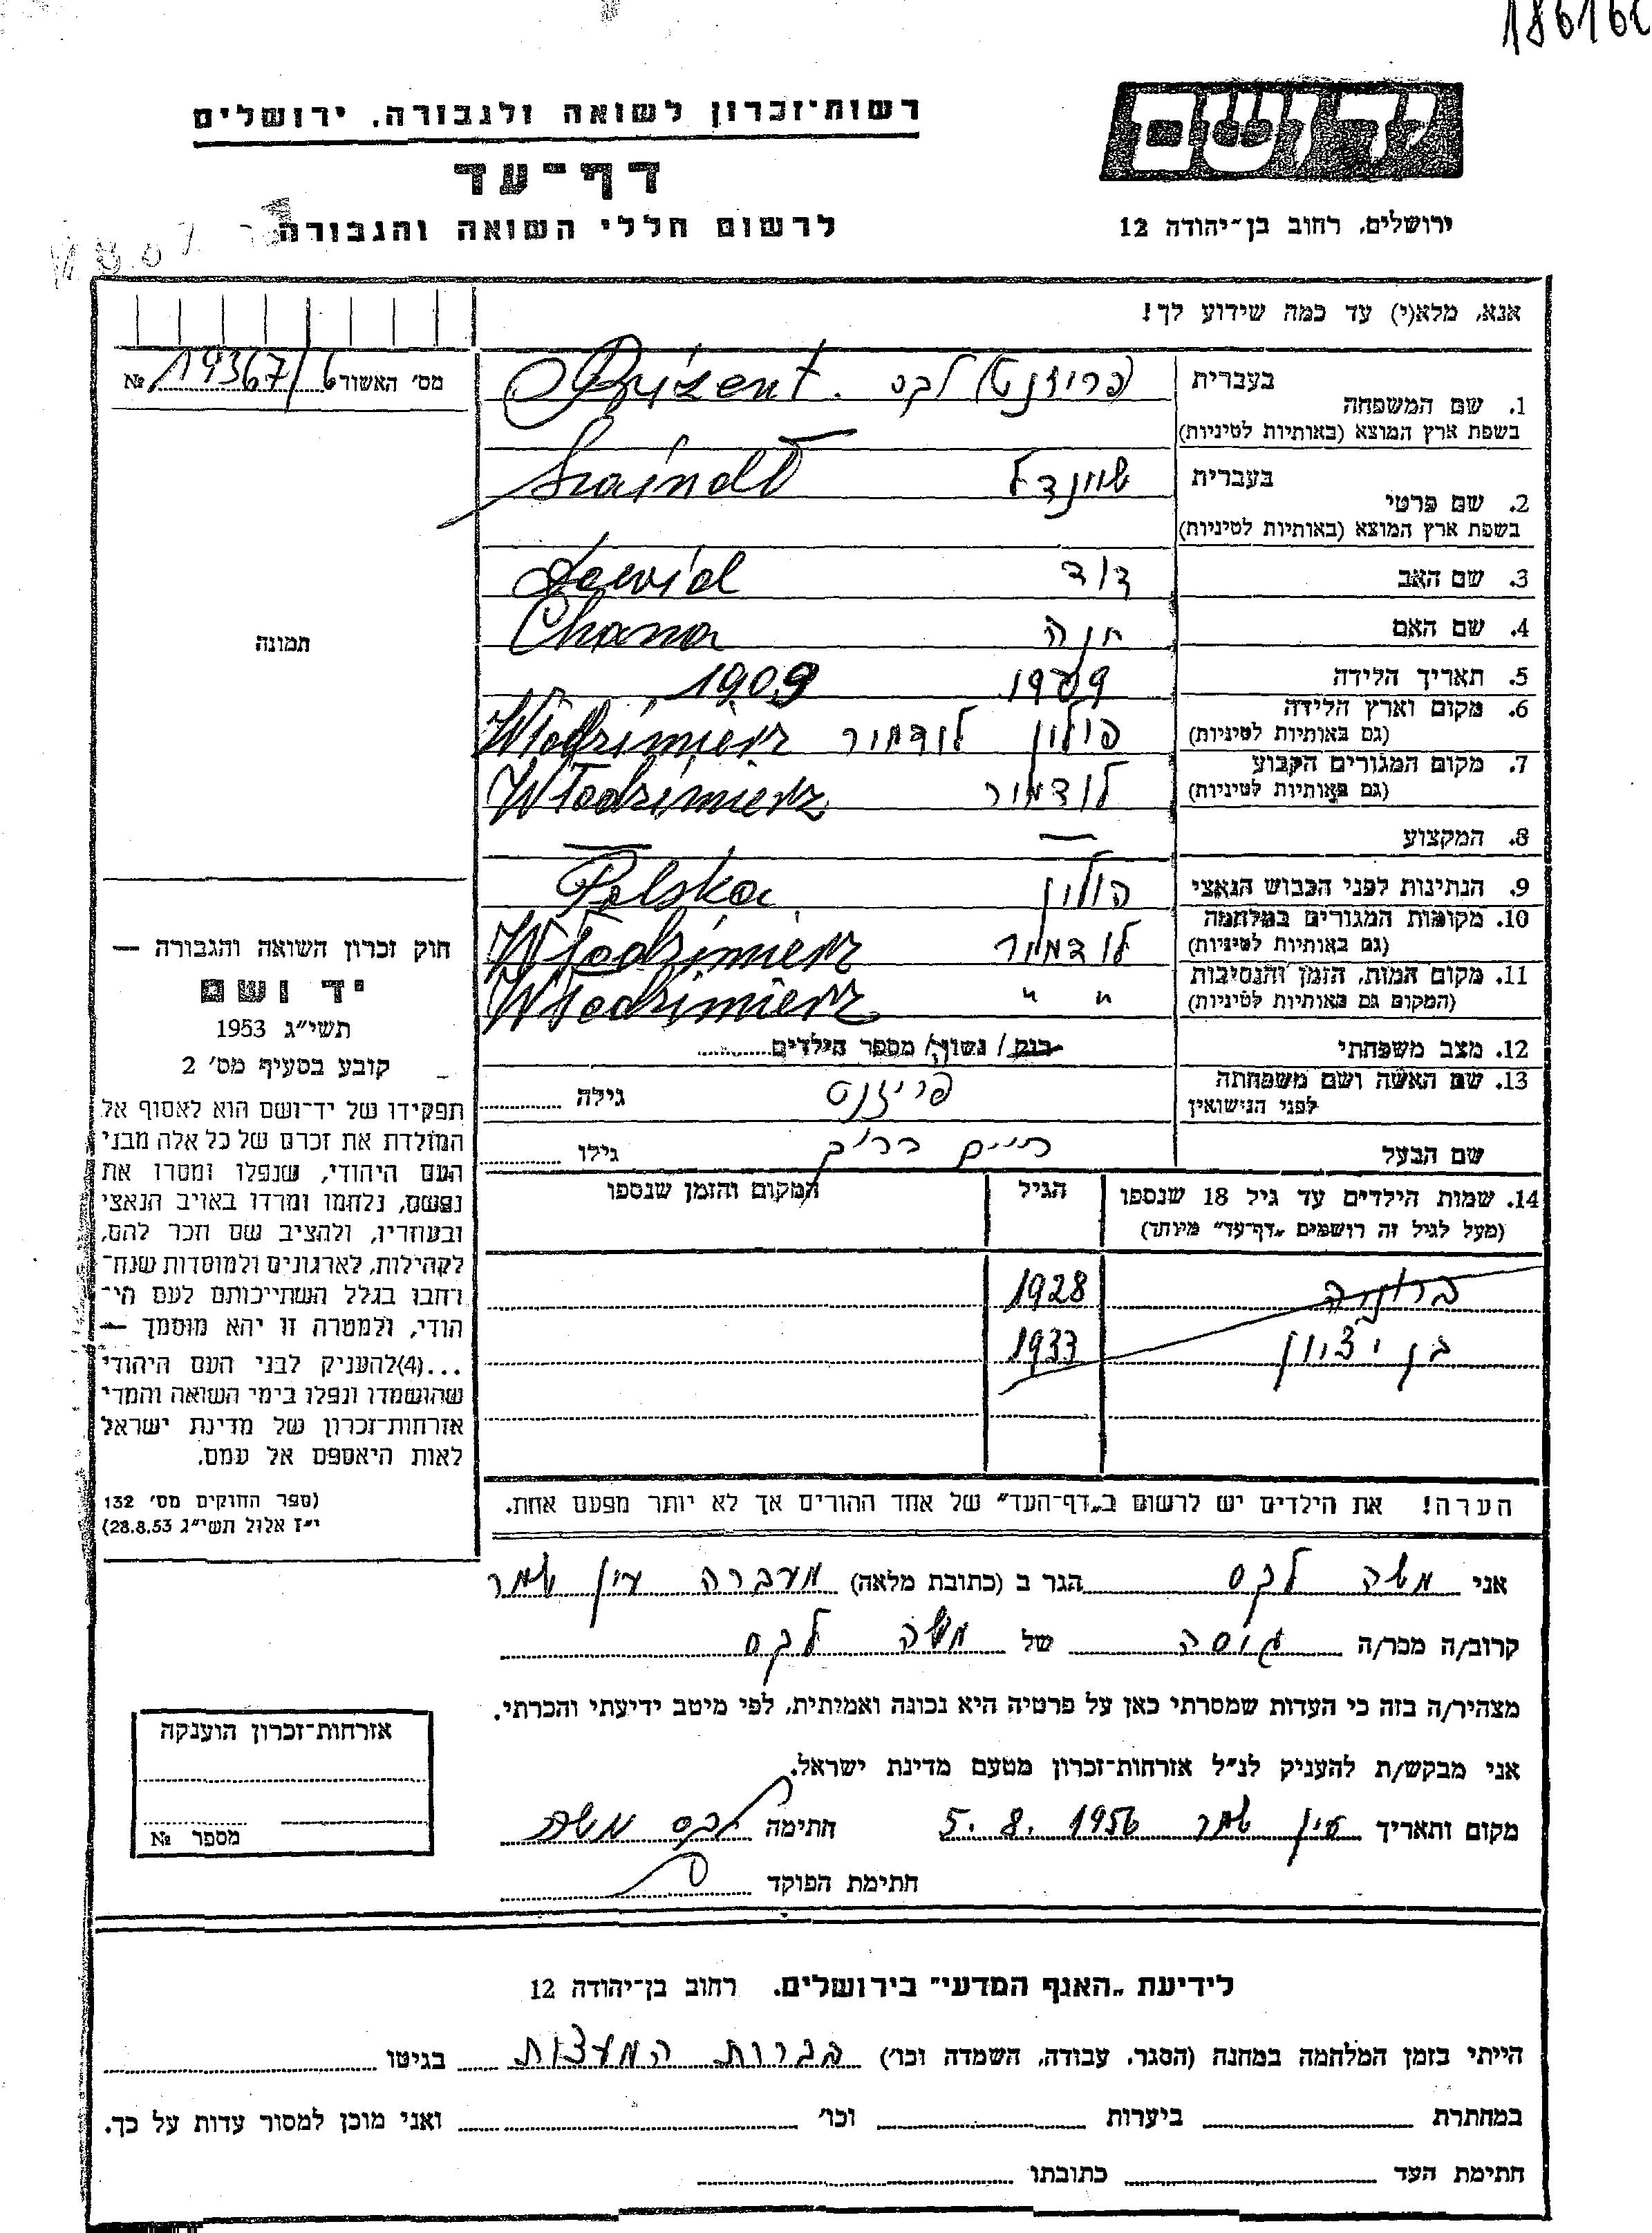 186160
רשות־זכרון לשואה ולגבורה, ירושלים
דף־עד
לרשום חללי השואה והגבורה
יד ושם
ירושלים, רחוב בן־יהודה 12
אנא, מלא(י) עד כמה שידוע לך!
מס׳ האשור 6/19367 №
תמונה
1. שם המשפחה בעברית (פריזנט) לקס. Prizent
בשפת ארץ המוצא (באותיות לטיניות)
2. שם פרטי בעברית שיינדל Szaindl
בשפת ארץ המוצא (באותיות לטיניות)
3. שם האב דוד Dawid
4. שם האם חנה Chana
5. תאריך הלידה 1909 1909
6. מקום וארץ הלידה פולין לודמיר Włodzimierz
(גם באותיות לטיניות)
7. מקום המגורים הקבוע לודמיר Włodzimierz
(גם באותיות לטיניות)
8. המקצוע — —
9. הנתינות לפני הכבוש הנאצי פולין Polska
10. מקומות המגורים במלחמה לודמיר Włodzimierz
(גם באותיות לטיניות)
11. מקום המות, הזמן והנסיבות " " Włodzimierz
(המקום גם באותיות לטיניות)
12. מצב משפחתי רווק / נשוי / מספר הילדים
13. שם האשה ושם משפחתה פריזנט גילה
לפני הנישואין
שם הבעל חיים גילו
14. שמות הילדים עד גיל 18 שנספו הגיל המקום והזמן שנספו
(מעל לגיל זה רושמים „דף־עד״ מיוחד)
ברוניה 1928
בן ציון 1933
הערה! את הילדים יש לרשום ב„דף־העד״ של אחד ההורים אך לא יותר מפעם אחת.
חוק זכרון השואה והגבורה —
יד ושם
תשי״ג 1953
קובע בסעיף מס׳ 2
תפקידו של יד־ושם הוא לאסוף אל
המולדת את זכרם של כל אלה מבני
העם היהודי, שנפלו ומסרו את
נפשם, נלחמו ומרדו באויב הנאצי
ובעוזריו, ולהציב שם וזכר להם,
לקהילות, לארגונים ולמוסדות שנח־
רבו בגלל השתייכותם לעם הי־
הודי, ולמטרה זו יהא מוסמך —
...(4) להעניק לבני העם היהודי
שהושמדו ונפלו בימי השואה והמרי
אזרחות־זכרון של מדינת ישראל
לאות היאספם אל עמם.
(ספר החוקים מס׳ 132
י״ז אלול תשי״ג 28.8.53)
אני משה לקס הגר ב (כתובת מלאה) מעברה עין שמר
קרוב/ה מכר/ה גיסה של משה לקס
מצהיר/ה בזה כי העדות שמסרתי כאן על פרטיה היא נכונה ואמיתית, לפי מיטב ידיעתי והכרתי.
אני מבקש/ת להעניק לנ״ל אזרחות־זכרון מטעם מדינת ישראל.
מקום ותאריך עין שמר 5.8.1956 חתימה לקס משה
חתימת הפוקד
אזרחות־זכרון הוענקה
מספר №
לידיעת „האגף המדעי״ בירושלים, רחוב בן־יהודה 12
הייתי בזמן המלחמה במחנה (הסגר, עבודה, השמדה וכו׳) בברית המועצות בגיטו
במחתרת ביערות וכו׳ ואני מוכן למסור עדות על כך.
חתימת העד כתובתו